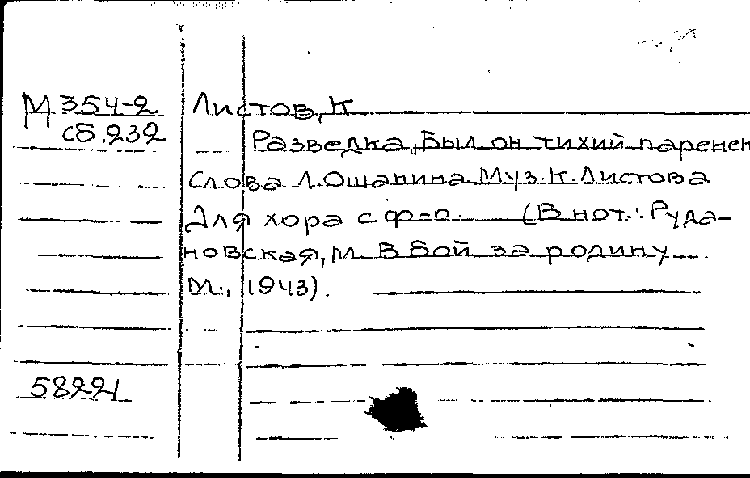 М 354-2 Листов, К
сб. 232 Разведка. Был он тихий паренек
Слова Л. Ошанина. Муз. К. Листова
Для хора с ф-о. (В нот.: Руда-
новская, М. В бой за родину
М., 1943).
58221